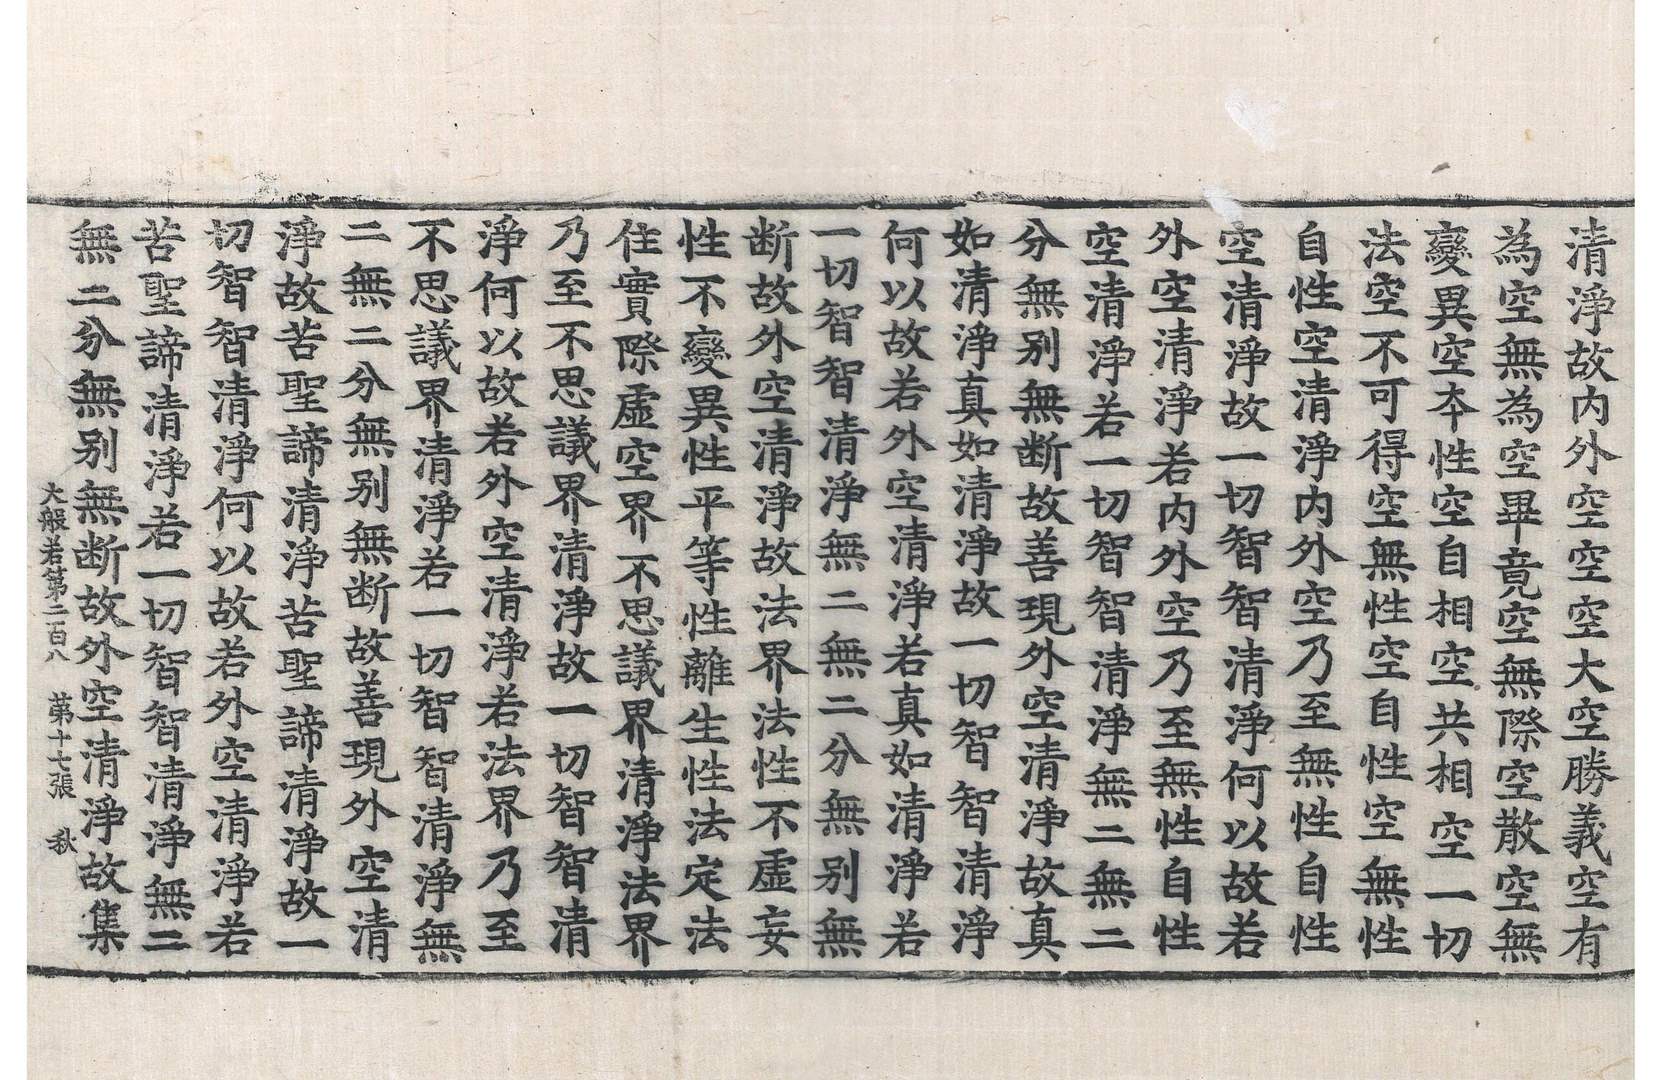 清淨故内外空空空大空勝義空有
為空無為空畢竟空無際空散空無
變異空本性空自相空共相空一切
法空不可得空無性空自性空無性
自性空清淨内外空乃至無性自性
空清淨故一切智智清淨何以故若
外空清淨若内外空乃至無性自性
空清淨若一切智智清淨無二無二
分無别無断故善現外空清淨故真
如清淨真如清淨故一切智智清淨
何以故若外空清淨若真如清淨若
一切智智清淨無二無二分無别無
断故外空清淨故法界法性不虛妄
性不變異性平等性離生性法定法
住實際虛空界不思議界清淨法界
乃至不思議界清淨故一切智智清
淨何以故若外空清淨若法界乃至
不思議界清淨若一切智智清淨無
二無二分無别無断故善現外空清
淨故苦聖諦清淨苦聖諦清淨故一
切智智清淨何以故若外空清淨若
苦聖諦清淨若一切智智清淨無二
無二分無别無断故外空清淨故集
大般若第二百八 第十七張 秋